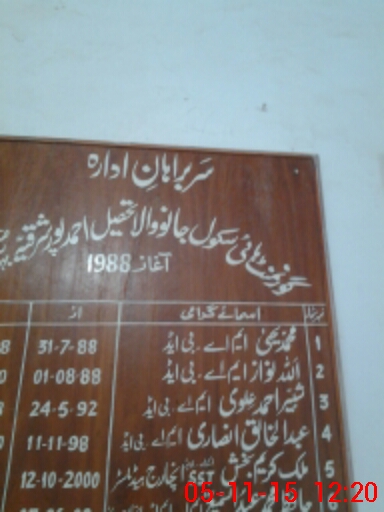 سربراہانِ ادارہ
گورنمنٹ ہائی سکول جانووالا تحصیل احمد پور شرقیہ
آغاز 1988
نمبر شمار اسمائے گرامی از
1 محمد یحییٰ ایم اے۔ بی ایڈ 31-7-88
2 اللہ نواز ایم اے۔ بی ایڈ 01-08-88
3 شبیر احمد علوی ایم اے۔ بی ایڈ 24-5-92
4 عبدالخالق انصاری ایم اے۔ بی ایڈ 11-11-98
5 ملک کریم بخش SST انچارج ہیڈماسٹر 12-10-2000
05-11-15 12:20